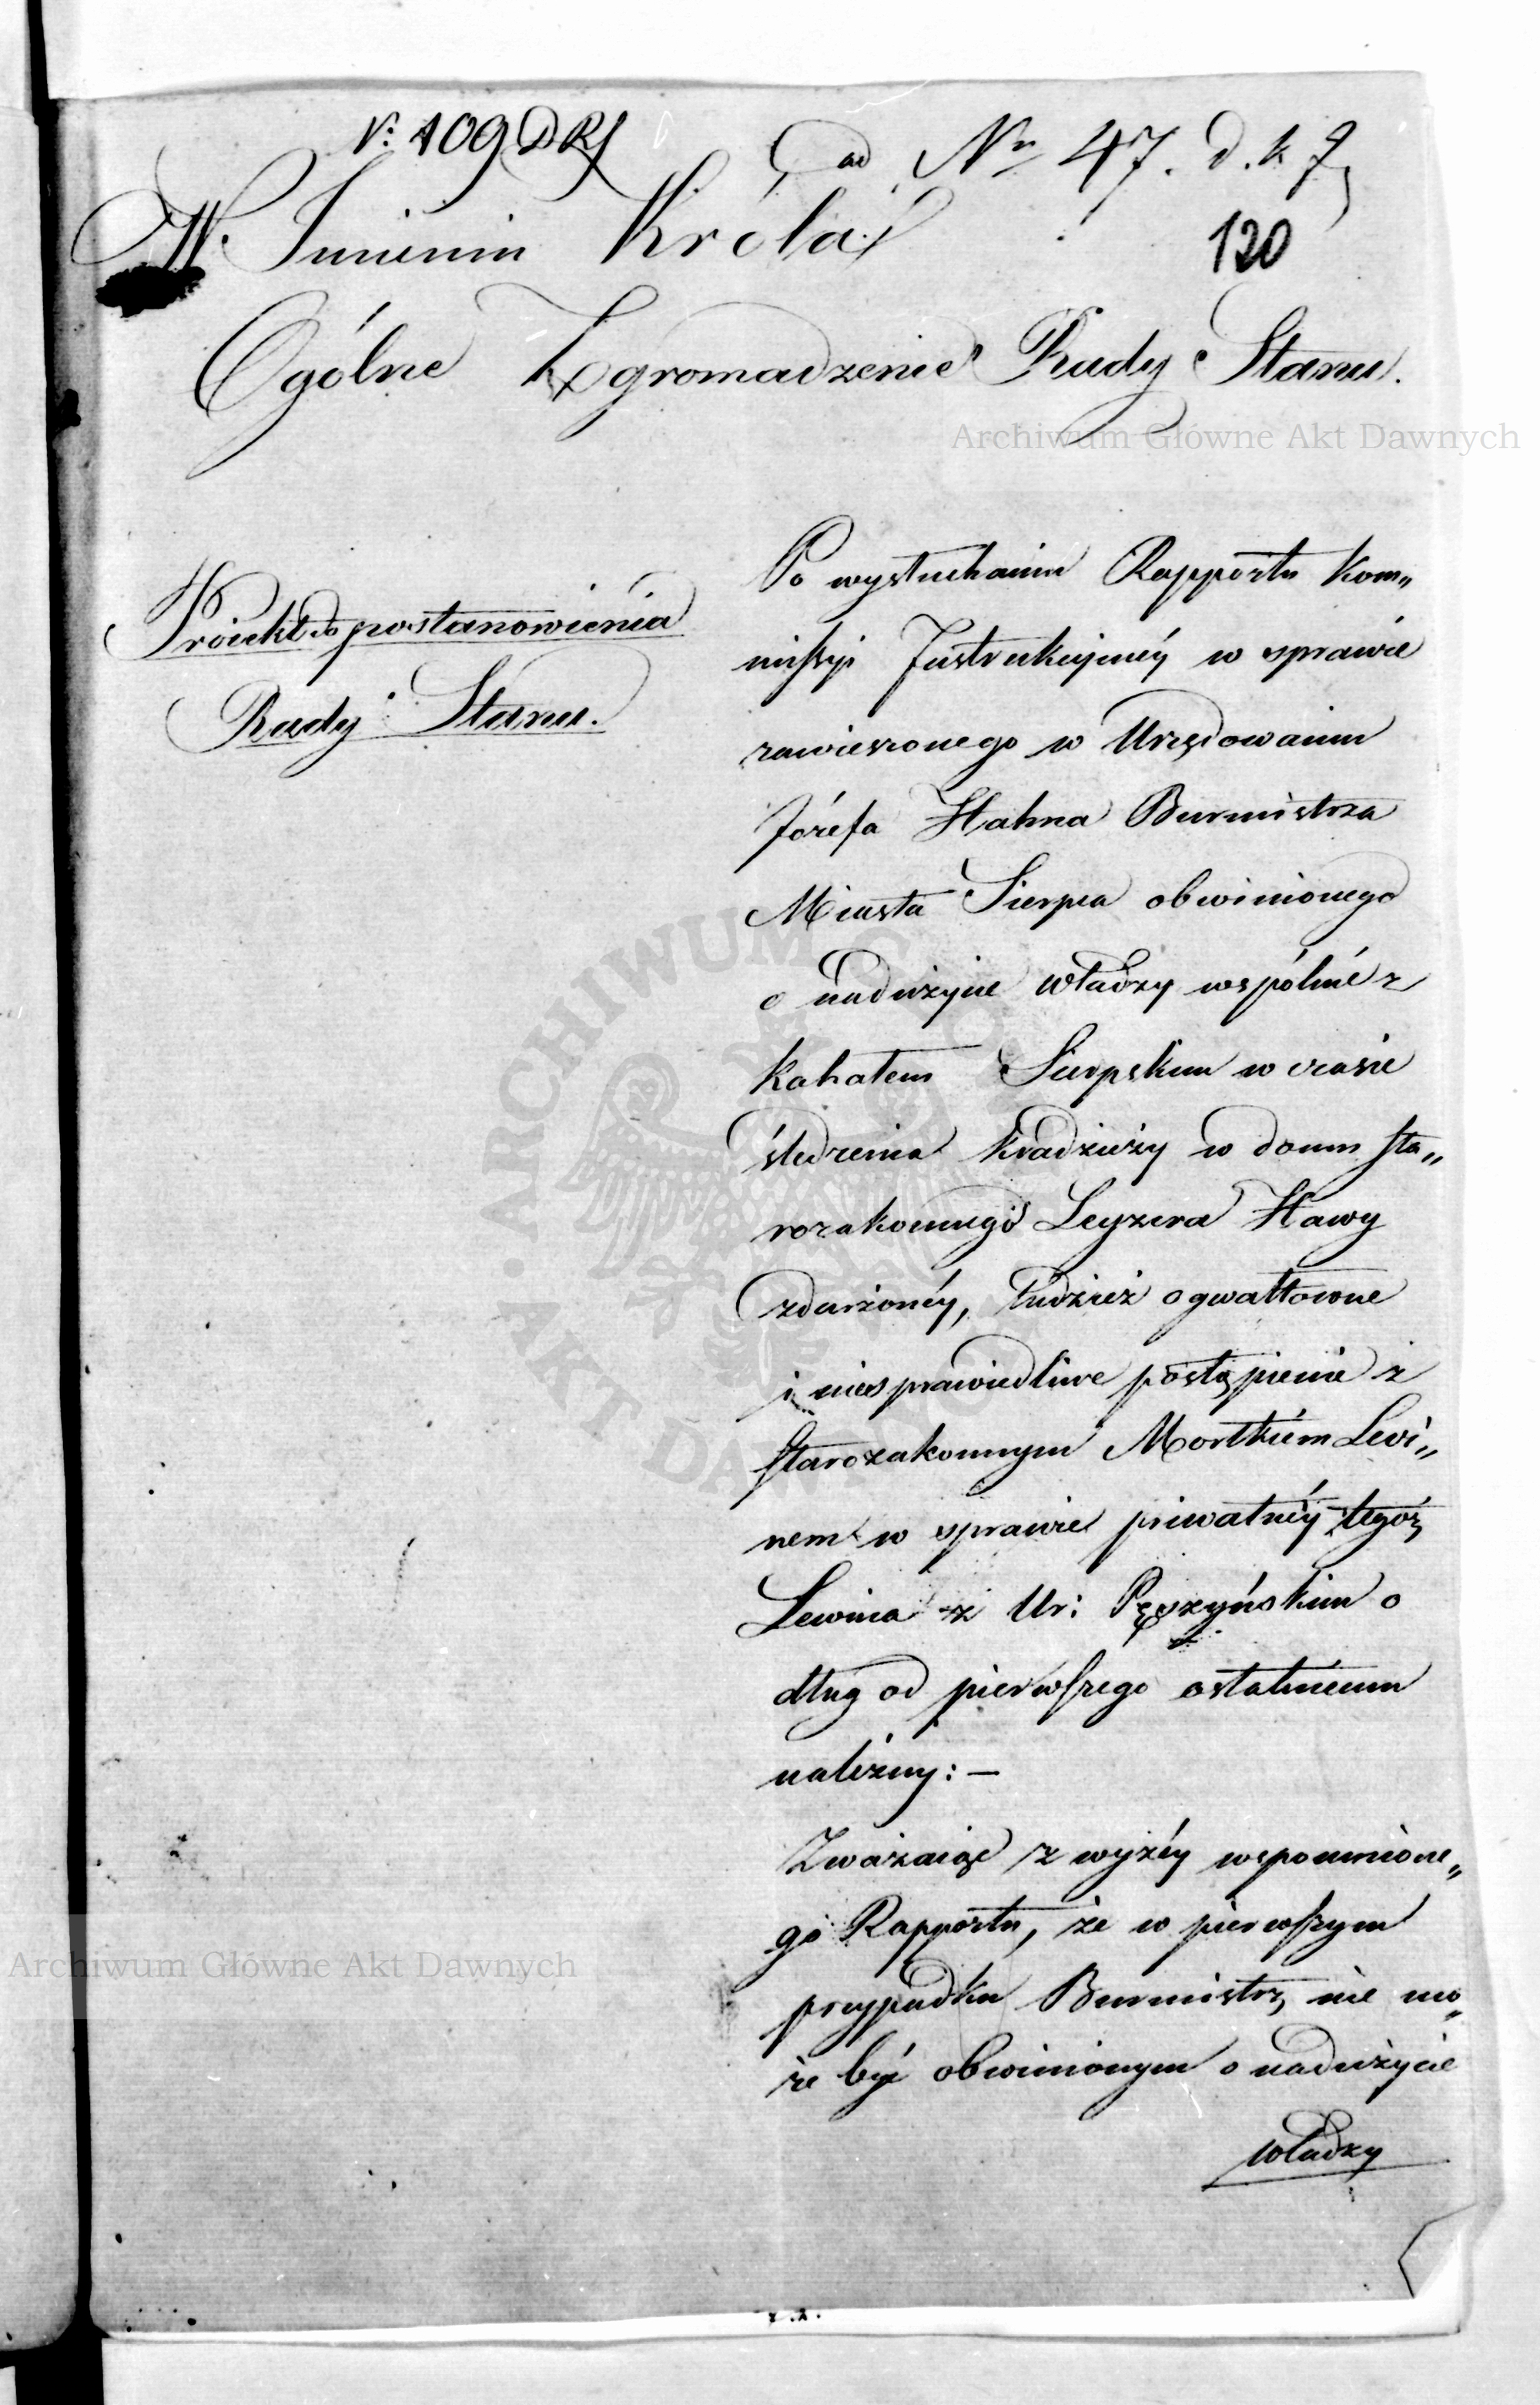 N: 109 DRS
ad Nr 47. d. k.
W Imieniu Króla
120
Ogólne Zgromadzenie Rady Stanu.
Archiwum Główne Akt Dawnych
Proiekt do postanowienia
Rady Stanu.
Po wysłuchaniu Rapportu Kom„
missyi Instrukcyjnéy w sprawie
zawieszonego w Urzędowaniu
Józefa Hahna Burmistrza
Miasta Sierpca obwinionego
o nadużycie władzy wspólnie z
Kahałem Sierpskim w czasie
śledzenia kradzieży w domu sta„
rozakonnego Leyzera Hawy
zdarzonéy, tudzież o gwałtowne
i niesprawiedliwe postąpienie z
starozakonnym Mortkiem Levi„
nem w sprawie priwatnéy tegóż
Lewina z Ur: Pęczyńskim o
dług od pierwszego ostatniemu
należny: —
Zważaiąc z wyżéy wspomnione„
go Rapportu, że w pierwszym
przypadku Burmistrz nie mo„
że być obwinionym o nadużycie
władzy
Archiwum Główne Akt Dawnych
ARCHIWUM GŁÓWNE AKT DAWNYCH